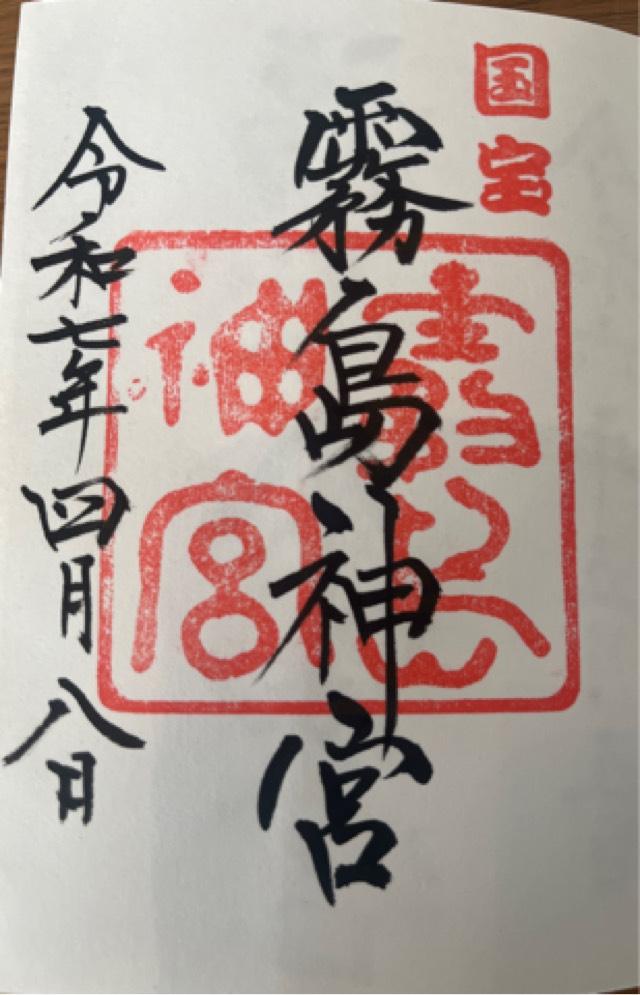 国宝
霧島神宮
霧島神宮
令和七年四月八日